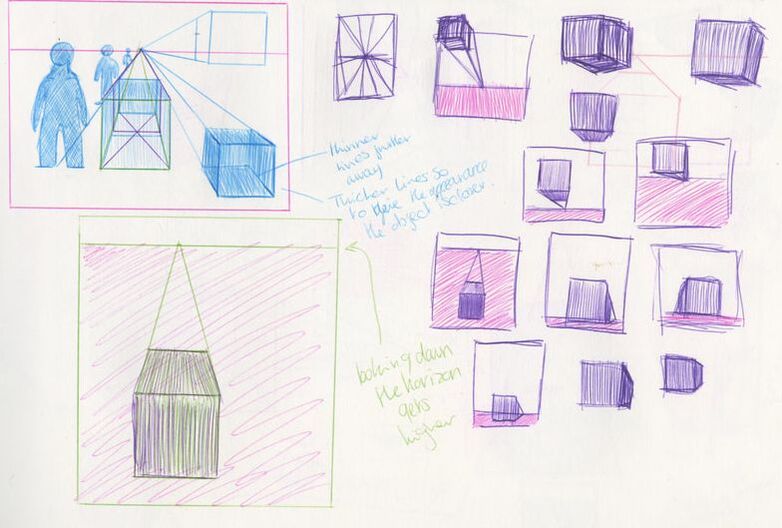 thinner
lines further
away
Thicker lines so
to give the appearance
the object is closer.
looking down
the horizon
gets
higher